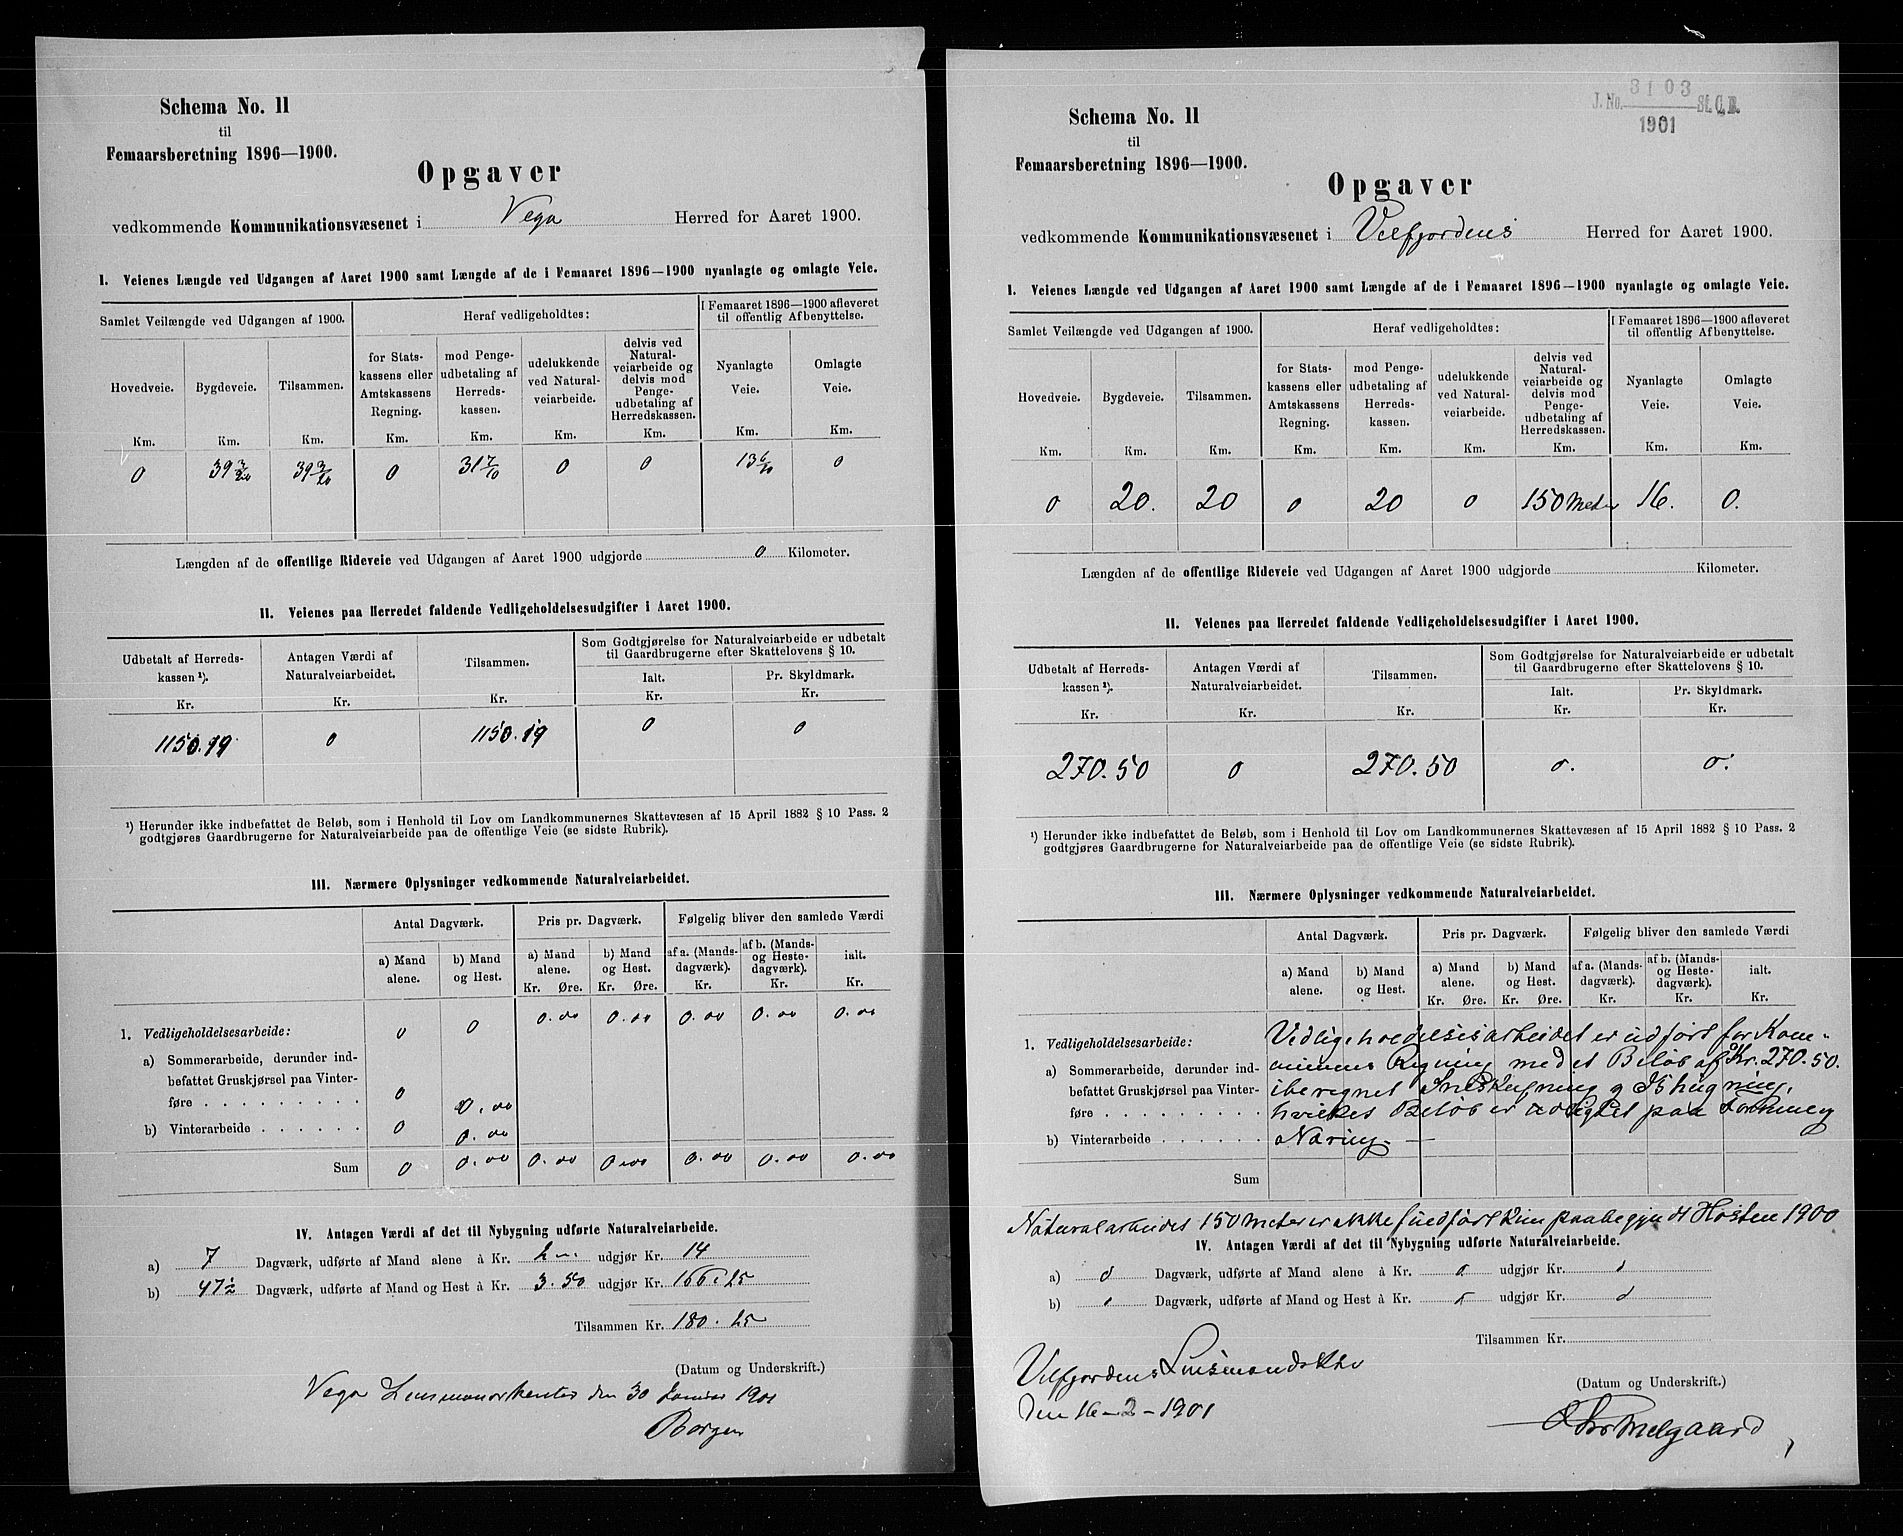 Schema No. 11
til
Femaarsberetning 1896—1900.
Opgaver
vedkommende Kommunikationsvæsenet i Vega Herred for Aaret 1900.
I. Veienes Længde ved Udgangen af Aaret 1900 samt Længde af de i Femaaret 1896—1900 nyanlagte og omlagte Veie.
Samlet Veilængde ved Udgangen af 1900. Heraf vedligeholdtes: I Femaaret 1896—1900 afleveret til offentlig Afbenyttelse.
Hovedveie. Bygdeveie. Tilsammen. for Statskassens eller Amtskassens Regning. mod Pengeudbetaling af Herredskassen. udelukkende ved Naturalveiarbeide. delvis ved Naturalveiarbeide og delvis mod Pengeudbetaling af Herredskassen. Nyanlagte Veie. Omlagte Veie.
Km. Km. Km. Km. Km. Km. Km. Km. Km.
0 39 3/20 39 3/20 0 31 7/10 0 0 13 6/10 0
Længden af de offentlige Rideveie ved Udgangen af Aaret 1900 udgjorde 0 Kilometer.
II. Veienes paa Herredet faldende Vedligeholdelsesudgifter i Aaret 1900.
Udbetalt af Herredskassen ¹). Antagen Værdi af Naturalveiarbeidet. Tilsammen. Som Godtgjørelse for Naturalveiarbeide er udbetalt til Gaardbrugerne efter Skattelovens § 10.
Ialt. Pr. Skyldmark.
Kr. Kr. Kr. Kr. Kr.
1150.19 0 1150.19 0 0
¹) Herunder ikke indbefattet de Beløb, som i Henhold til Lov om Landkommunernes Skattevæsen af 15 April 1882 § 10 Pass. 2
godtgjøres Gaardbrugerne for Naturalveiarbeide paa de offentlige Veie (se sidste Rubrik).
III. Nærmere Oplysninger vedkommende Naturalveiarbeidet.
Antal Dagværk. Pris pr. Dagværk. Følgelig bliver den samlede Værdi
a) Mand alene. b) Mand og Hest. a) Mand alene. b) Mand og Hest. af a. (Mandsdagværk). af b. (Mands- og Hestedagværk). ialt.
Kr. Øre. Kr. Øre. Kr. Kr. Kr.
1. Vedligeholdelsesarbeide: 0 0 0.00 0.00 0.00 0.00 0.00
a) Sommerarbeide, derunder ind-
befattet Gruskjørsel paa Vinter-
føre 0 0.00
b) Vinterarbeide 0 0.00
Sum 0 0.00 0.00 0.00 0.00 0.00 0.00
IV. Antagen Værdi af det til Nybygning udførte Naturalveiarbeide.
a) 7 Dagværk, udførte af Mand alene à Kr. 2 udgjør Kr. 14
b) 47½ Dagværk, udførte af Mand og Hest à Kr. 3.50 udgjør Kr. 166.25
Tilsammen Kr. 180.25
(Datum og Underskrift.)
Vega Lensmandskontor den 30 Januar 1901
Borgen
J. No. 3103 St. C. B.
1901
Schema No. 11
til
Femaarsberetning 1896—1900.
Opgaver
vedkommende Kommunikationsvæsenet i Velfjordens Herred for Aaret 1900.
I. Veienes Længde ved Udgangen af Aaret 1900 samt Længde af de i Femaaret 1896—1900 nyanlagte og omlagte Veie.
Samlet Veilængde ved Udgangen af 1900. Heraf vedligeholdtes: I Femaaret 1896—1900 afleveret til offentlig Afbenyttelse.
Hovedveie. Bygdeveie. Tilsammen. for Statskassens eller Amtskassens Regning. mod Pengeudbetaling af Herredskassen. udelukkende ved Naturalveiarbeide. delvis ved Naturalveiarbeide og delvis mod Pengeudbetaling af Herredskassen. Nyanlagte Veie. Omlagte Veie.
Km. Km. Km. Km. Km. Km. Km. Km. Km.
0 20. 20 0 20 0 150 Meter 16. 0.
Længden af de offentlige Rideveie ved Udgangen af Aaret 1900 udgjorde Kilometer.
II. Veienes paa Herredet faldende Vedligeholdelsesudgifter i Aaret 1900.
Udbetalt af Herredskassen ¹). Antagen Værdi af Naturalveiarbeidet. Tilsammen. Som Godtgjørelse for Naturalveiarbeide er udbetalt til Gaardbrugerne efter Skattelovens § 10.
Ialt. Pr. Skyldmark.
Kr. Kr. Kr. Kr. Kr.
270.50 0 270.50 0. 0.
¹) Herunder ikke indbefattet de Beløb, som i Henhold til Lov om Landkommunernes Skattevæsen af 15 April 1882 § 10 Pass. 2
godtgjøres Gaardbrugerne for Naturalveiarbeide paa de offentlige Veie (se sidste Rubrik).
III. Nærmere Oplysninger vedkommende Naturalveiarbeidet.
Antal Dagværk. Pris pr. Dagværk. Følgelig bliver den samlede Værdi
a) Mand alene. b) Mand og Hest. a) Mand alene. b) Mand og Hest. af a. (Mandsdagværk). af b. (Mands- og Hestedagværk). ialt.
Kr. Øre. Kr. Øre. Kr. Kr. Kr.
1. Vedligeholdelsesarbeide: Vedligeholdelsesarbeidet er udført for Kom-
a) Sommerarbeide, derunder ind- munens Regning med et Beløb af Kr. 270.50.
befattet Gruskjørsel paa Vinter- iberegnet og Ishugning,
føre hvilket Beløb er udlignet paa Formue og
b) Vinterarbeide Næring. —
Sum
Naturalarbeidet 150 Meter er ikke udført kun paabegyndt Høsten 1900
IV. Antagen Værdi af det til Nybygning udførte Naturalveiarbeide.
a) 0 Dagværk, udførte af Mand alene à Kr. 0 udgjør Kr. 0
b) 0 Dagværk, udførte af Mand og Hest à Kr. 0 udgjør Kr. 0
Tilsammen Kr.
Velfjordens Lensmandsktr
(Datum og Underskrift.)
den 16-2-1901